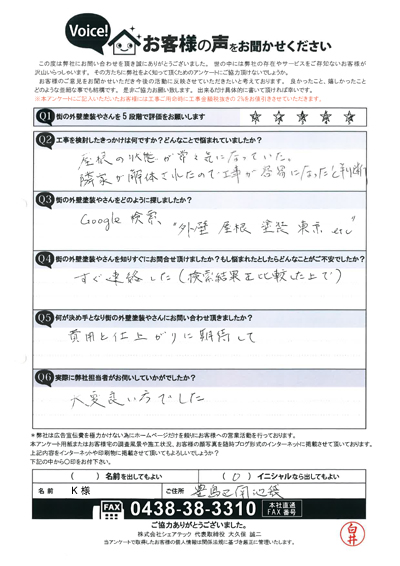 Voice!
お客様の声をお聞かせください
この度は弊社にお問い合わせを頂き誠にありがとうございました。世の中には弊社の存在やサービスをご存知ないお客様が
沢山いらっしゃいます。その方たちに弊社をよく知って頂くためのアンケートにご協力頂けないでしょうか。
お客様のご意見をお聞かせいただき今後の活動に反映させていただきたいと考えております。良かったこと、嬉しかったこと
どのような些細な事でも結構です。是非ご協力お願い致します。出来るだけ具体的に書いて頂ければ幸いです。
※本アンケートにご記入いただいたお客様には工事ご用命時に工事金額税抜きの2%をお値引きさせていただきます。
Q1 街の外壁塗装やさんを5段階で評価をお願いします
Q2 工事を検討したきっかけは何ですか？どんなことで悩まれていましたか？
屋根の状態が常と気になっていた。
隣家が解体されたので工事が容易になったと判断
Q3 街の外壁塗装やさんをどのように探しましたか？
Google検索、
"外壁 屋根 塗装 東京 etc"
Q4 街の外壁塗装やさんを知りすぐにお問合せ頂けましたか？もし悩まれたとしたらどんなことがご不安でしたか？
すぐ連絡した（検索結果を比較した上で）
Q5 何が決め手となり街の外壁塗装やさんにお問い合わせ頂きましたか？
費用と仕上がりに期待して
Q6 実際に弊社担当者がお伺いしていかがでしたか？
大変良い方でした
＊弊社は広告宣伝費を極力かけない為にホームページだけを頼りにお客様への営業活動を行っております。
本アンケート用紙またはお客様宅の調査風景や施工状況、お客様の顔写真を随時ブログ形式のインターネットに掲載させて頂いております。
上記内容をインターネットや印刷物に掲載させて頂いてもよろしいでしょうか？
下記の中から〇印をお付下さい。
（　）名前を出してもよい （○）イニシャルなら出してもよい
名前 K様 ご住所 豊島区南池袋
FAX 0438-38-3310 本社直通 FAX番号
ご協力ありがとうございました。
株式会社シェアテック 代表取締役 大久保 誠二
当アンケートで取得したお客様の個人情報は関係法規に基づき厳正に管理いたします。
白井